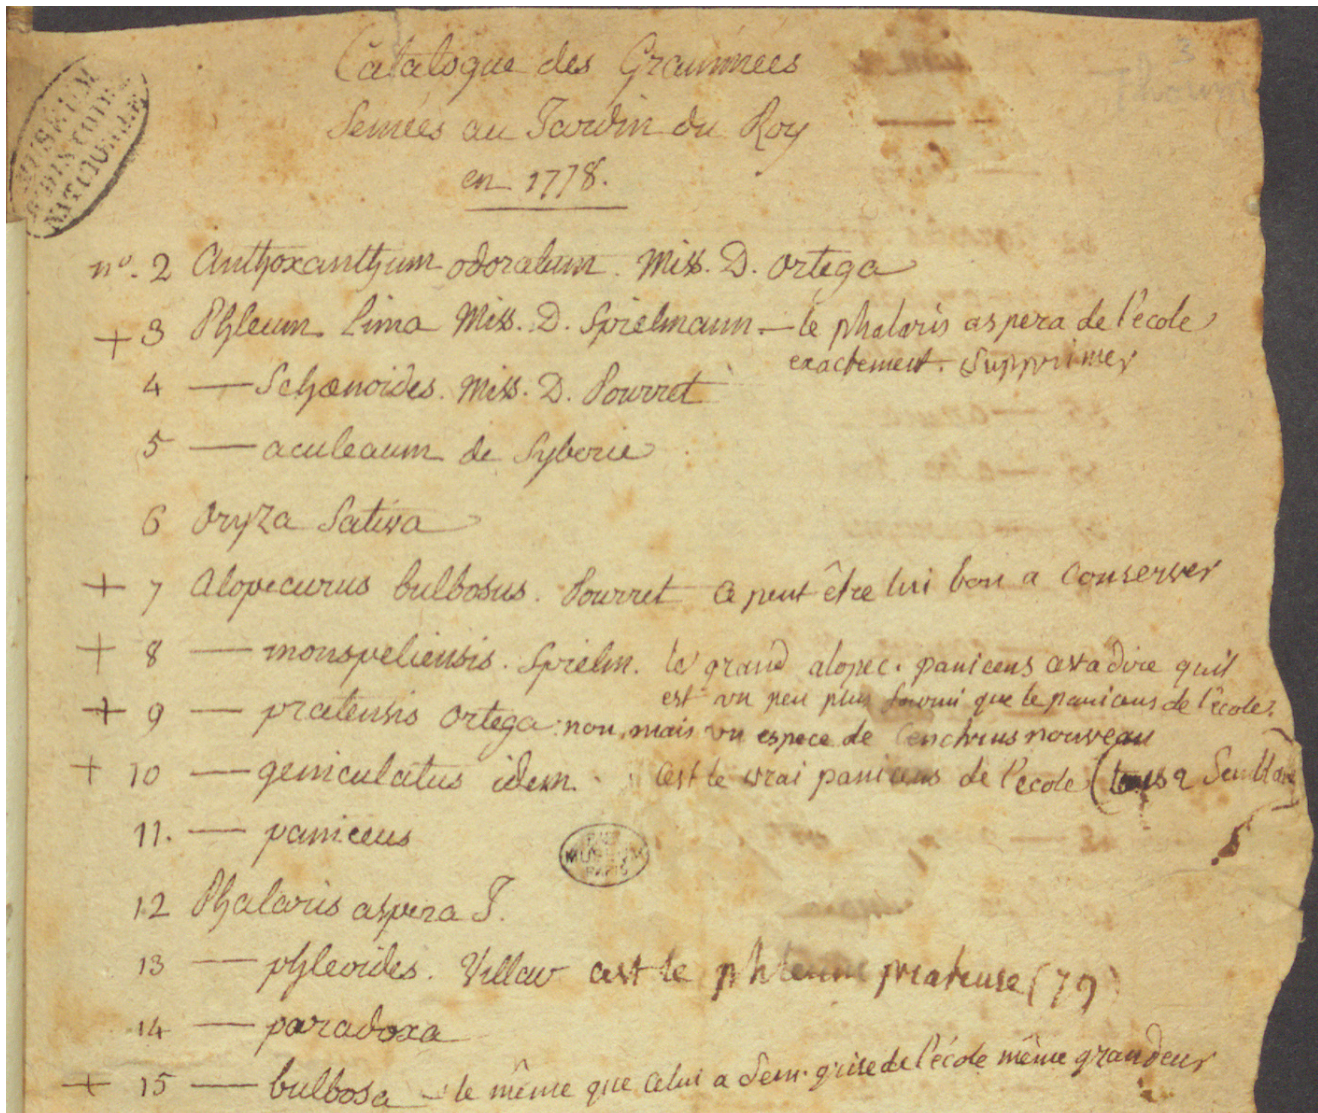 Catalogue des Graminées
Semées au Jardin du Roy
en 1778.
MUSEUM
D'HISTOIRE
NATURELLE
n°. 2 Anthoxanthum odoratum. Miss. D. Ortega
+ 3 Phleum Lima Miss. D. Spielmann — le phalaris aspera de l'école
exactement. Supprimer
4 — Schænoides. Miss. D. Pourret
5 — aculeaum de Syberie
6 Oryza Sativa
+ 7 Alopecurus bulbosus. Pourret Ce peut être lui bon a conserver
+ 8 — monspeliensis. Spielm. le grand alopec. paniceus asadire quil
est un peu plus fourni que le paniceus de l'école.
+ 9 — pratensis Ortega non, mais un espece de Cenchrus nouveau
+ 10 — geniculatus idem. cest le vrai paniceus de l'école (tous 2
11. — paniceus
MUSEUM
PARIS
12 Phalaris aspera J.
13 — phleoides. Villar cest le phleum pratense (79)
14 — paradoxa
+ 15 — bulbosa — le même que celui a Sem. grise de l'école même grandeur